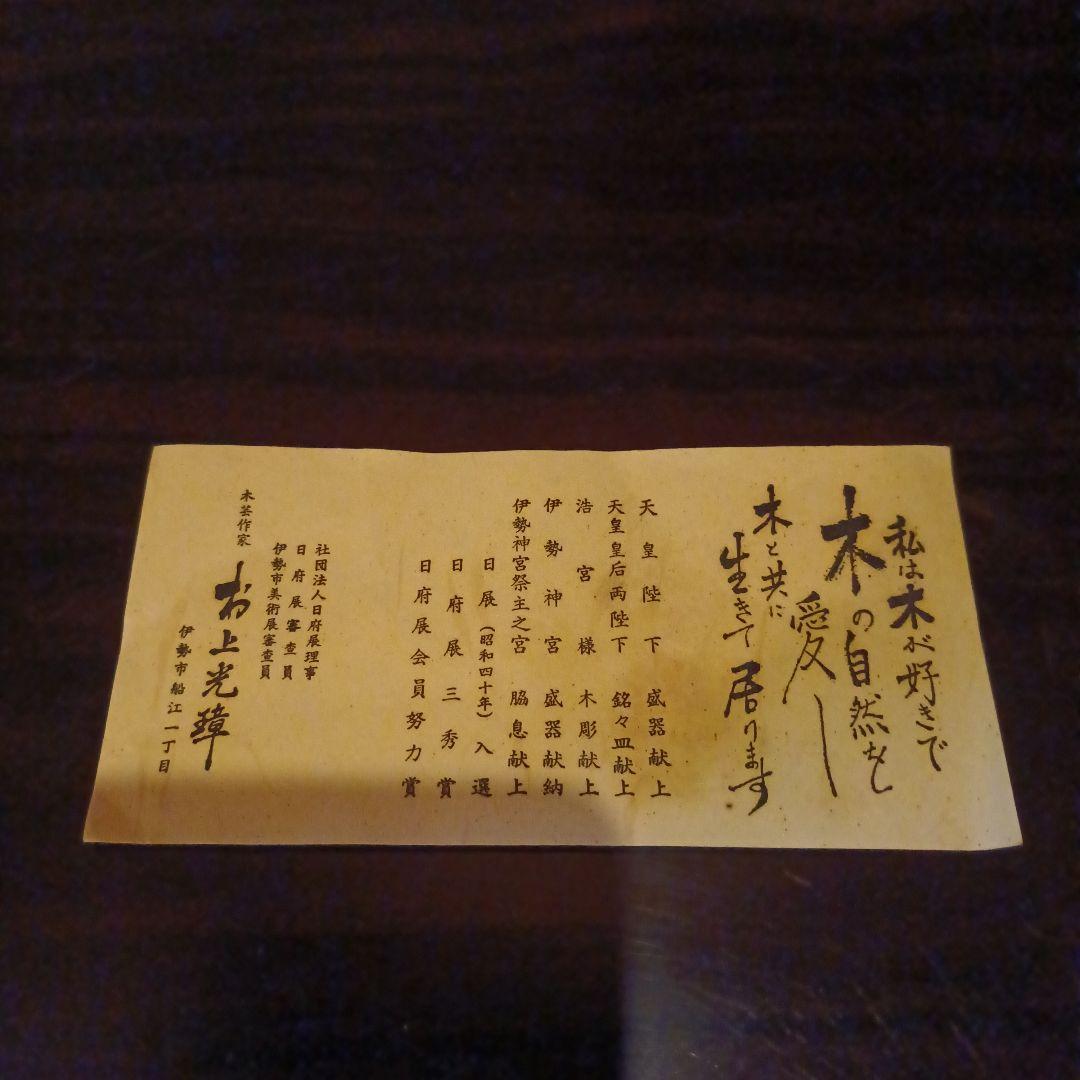 私は木が好きで
木の自然を
愛し
木と共に
生きて居ります
天皇陛下 盛器献上
天皇皇后両陛下 銘々皿献上
浩宮様 木彫献上
伊勢神宮 盛器献納
伊勢神宮祭主之宮 脇息献上
日展(昭和四十年)入選
日府展三秀賞
日府展会員努力賞
社団法人日府展理事
日府展審査員
伊勢市美術展審査員
木芸作家
上光璋
伊勢市船江一丁目